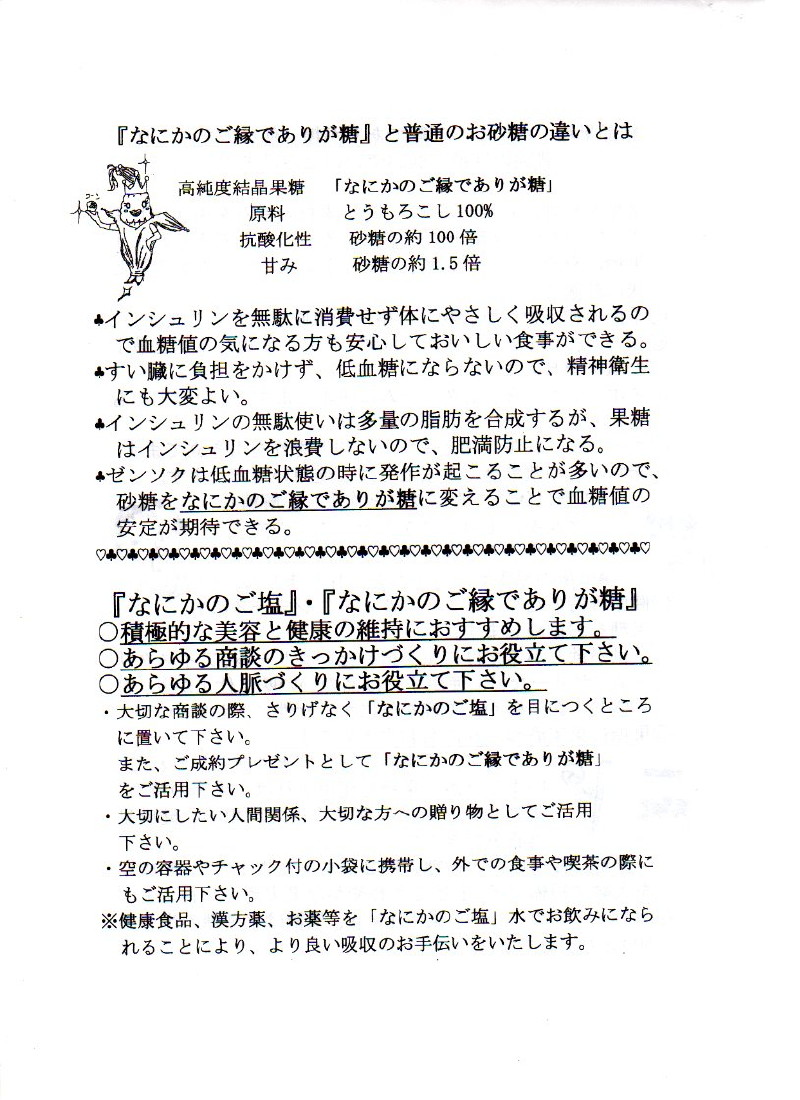 『なにかのご縁でありが糖』と普通のお砂糖の違いとは
コーン
高純度結晶果糖　「なにかのご縁でありが糖」
原料　とうもろこし100%
抗酸化性　砂糖の約100倍
甘み　砂糖の約1.5倍
♣インシュリンを無駄に消費せず体にやさしく吸収されるの
で血糖値の気になる方も安心しておいしい食事ができる。
♣すい臓に負担をかけず、低血糖にならないので、精神衛生
にも大変よい。
♣インシュリンの無駄使いは多量の脂肪を合成するが、果糖
はインシュリンを浪費しないので、肥満防止になる。
♣ゼンソクは低血糖状態の時に発作が起こることが多いので、
砂糖をなにかのご縁でありが糖に変えることで血糖値の
安定が期待できる。
♡♣♡♣♡♣♡♣♡♣♡♣♡♣♡♣♡♣♡♣♡♣♡♣♡♣♡♣♡♣♡♣♡♣♡♣♡♣♡♣♡♣♡♣♡♣♡♣♡♣♡♣♡
『なにかのご塩』・『なにかのご縁でありが糖』
○積極的な美容と健康の維持におすすめします。
○あらゆる商談のきっかけづくりにお役立て下さい。
○あらゆる人脈づくりにお役立て下さい。
・大切な商談の際、さりげなく「なにかのご塩」を目につくところ
に置いて下さい。
また、ご成約プレゼントとして「なにかのご縁でありが糖」
をご活用下さい。
・大切にしたい人間関係、大切な方への贈り物としてご活用
下さい。
・空の容器やチャック付の小袋に携帯し、外での食事や喫茶の際に
もご活用下さい。
※健康食品、漢方薬、お薬等を「なにかのご塩」水でお飲みになら
れることにより、より良い吸収のお手伝いをいたします。